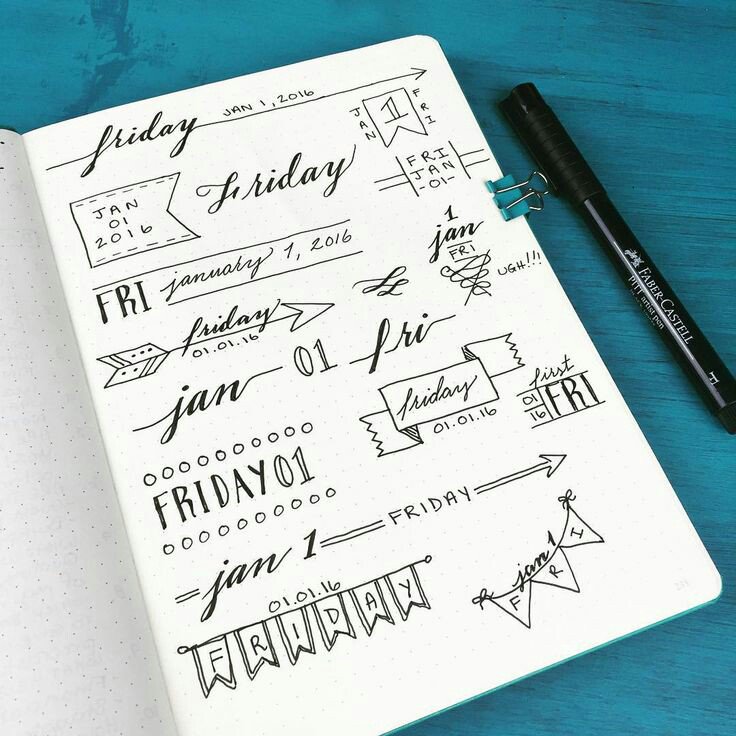 friday
JAN 1, 2016
JAN
1
FRI
JAN
01
2016
Friday
FRI
JAN
-01-
FRI january 1, 2016
1
jan
FRI
UGH!!!
friday
01.01.16
jan 01
fri
friday
01.01.16
first
01
16
FRI
FRIDAY 01
jan 1
FRIDAY
jan 1
FRI
01.01.16
FRIDAY
FABER-CASTELL
PITT artist pen
F